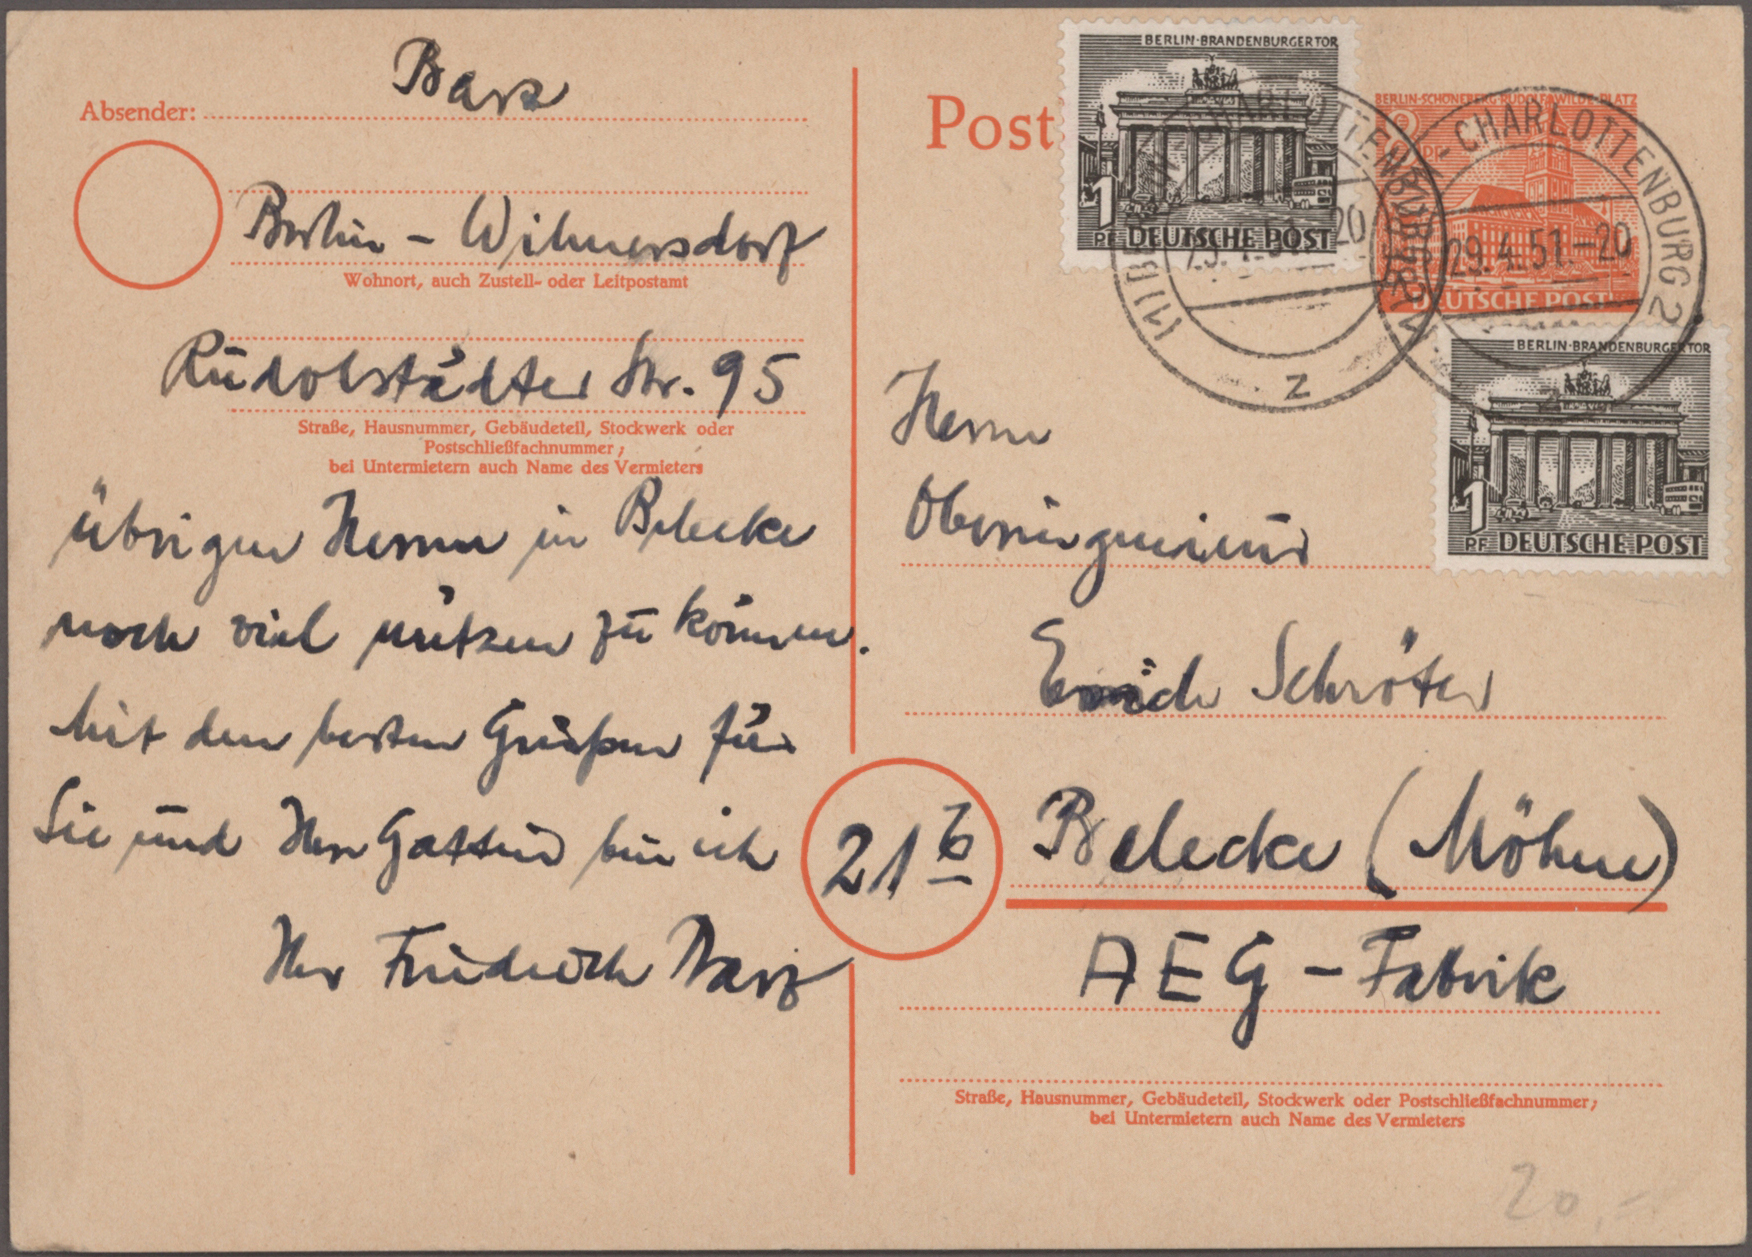 Absender: Barz
Berlin - Wilmersdorf
Wohnort, auch Zustell- oder Leitpostamt
Rudolstädter Str. 95
Straße, Hausnummer, Gebäudeteil, Stockwerk oder
Postschließfachnummer;
bei Untermietern auch Name des Vermieters
übrigen Herrn in Belecke
noch viel nützen zu können.
Mit den besten Grüßen für
Sie und Ihre Gattin bin ich
Ihr Friedrich Barz
Post
BERLIN-BRANDENBURGER TOR
1
PF DEUTSCHE POST
BERLIN-SCHÖNEBERG RUDOLF-WILDE-PLATZ
DEUTSCHE POST
(1) BERLIN-CHARLOTTENBURG 2
20
z
-CHARLOTTENBURG 2
29.4.51.-20
BERLIN-BRANDENBURGER TOR
1
PF DEUTSCHE POST
Herrn
Oberingenieur
Erich Schröter
21b Belecke (Möhne)
AEG - Fabrik
Straße, Hausnummer, Gebäudeteil, Stockwerk oder Postschließfachnummer;
bei Untermietern auch Name des Vermieters
20,-